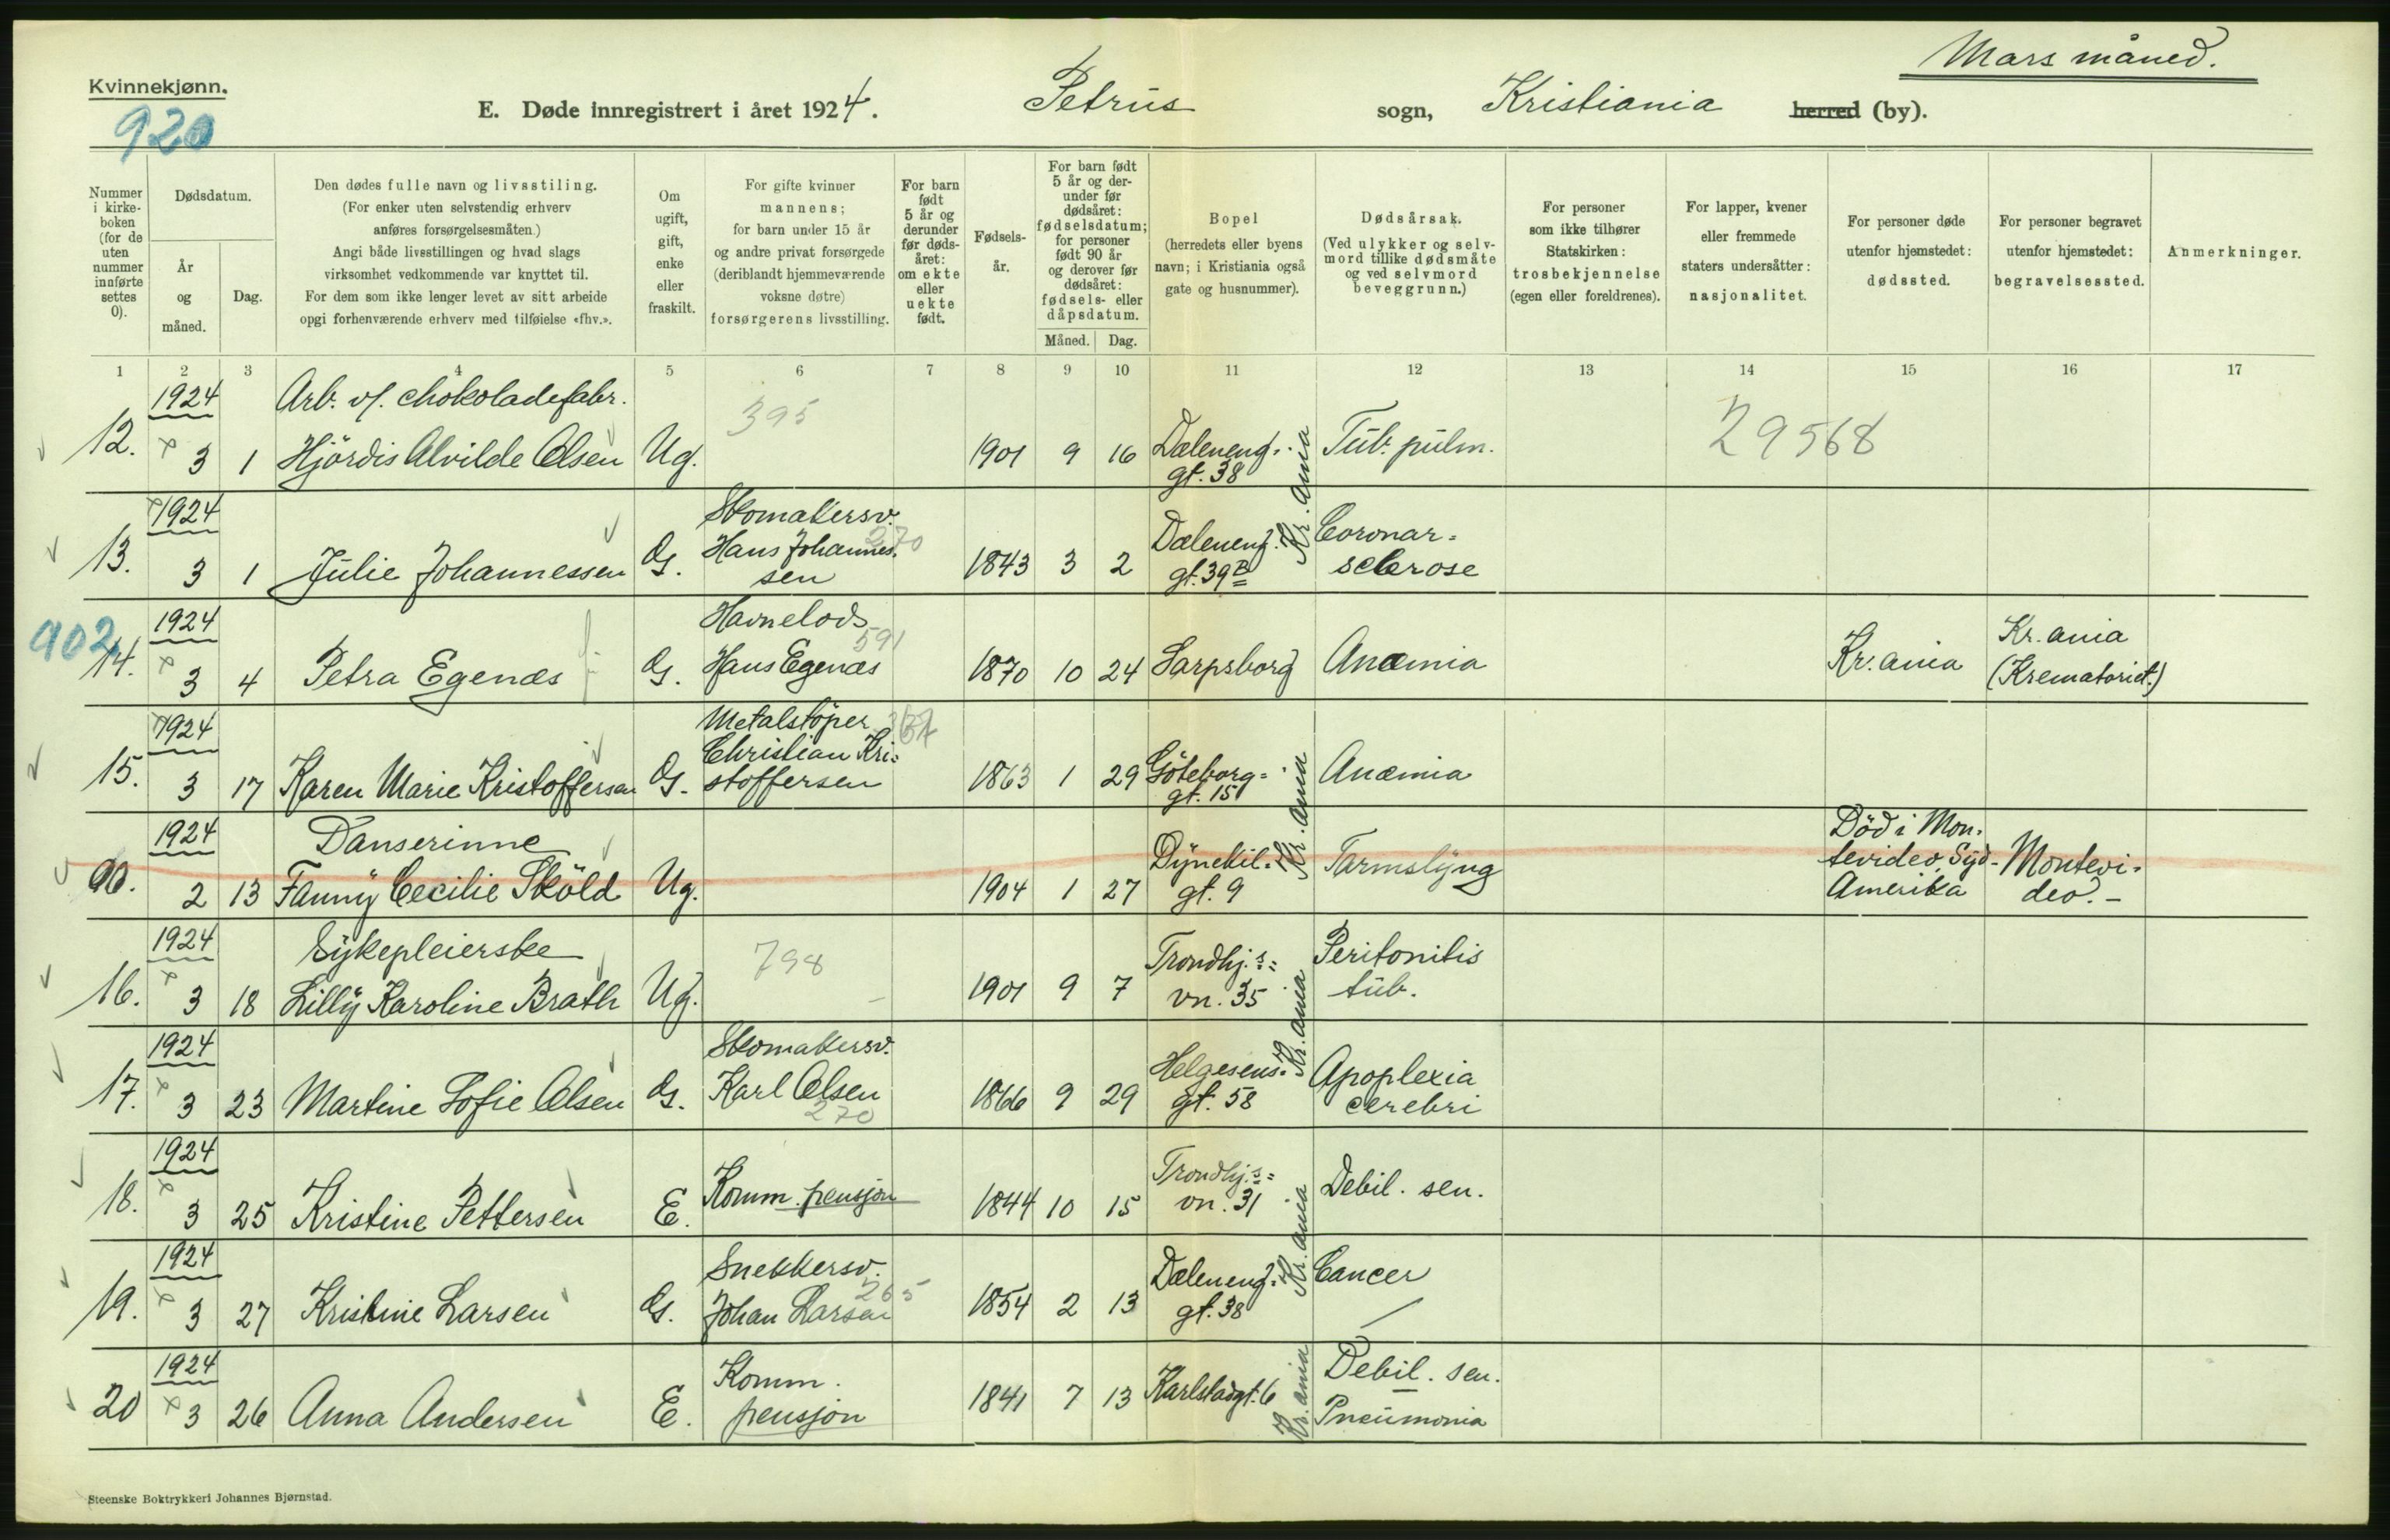 Mars måned.
Kvinnekjønn.
920
E. Døde innregistrert i året 1924. Petrus sogn, Kristiania herred (by).
Nummer i kirkeboken (for de uten nummer innførte settes 0).
Dødsdatum.
År og måned.
Dag.
Den dødes fulle navn og livsstiling.
(For enker uten selvstendig erhverv
anføres forsørgelsesmåten.)
Angi både livsstillingen og hvad slags
virksomhet vedkommende var knyttet til.
For dem som ikke lenger levet av sitt arbeide
opgi forhenværende erhverv med tilføielse «fhv.».
Om ugift, gift, enke eller fraskilt.
For gifte kvinner
mannens;
for barn under 15 år
og andre privat forsørgede
(deriblandt hjemmeværende
voksne døtre)
forsørgerens livsstilling.
For barn født 5 år og derunder før dødsåret: om ekte eller uekte født.
Fødselsår.
For barn født 5 år og derunder før dødsåret: fødselsdatum; for personer født 90 år og derover før dødsåret: fødsels- eller dåpsdatum.
Måned. Dag.
Bopel
(herredets eller byens
navn; i Kristiania også
gate og husnummer).
Dødsårsak.
(Ved ulykker og selv-
mord tillike dødsmåte
og ved selvmord
beveggrunn.)
For personer
som ikke tilhører
Statskirken:
trosbekjennelse
(egen eller foreldrenes).
For lapper, kvener
eller fremmede
staters undersåtter:
nasjonalitet.
For personer døde
utenfor hjemstedet:
dødssted.
For personer begravet
utenfor hjemstedet:
begravelsessted.
Anmerkninger.
1 2 3 4 5 6 7 8 9 10 11 12 13 14 15 16 17
1924 Arb. v/. chokoladefabr. 395
12. 3 1 Hjördis Alvilde Olsen Ug. 1901 9 16 Dæleneng. gt. 38 Kr.ania Tub. pulm. 29568
1924 Skomakersv. 270
13. 3 1 Julie Johannessen G. Hans Johannes. sen 1843 3 2 Dæleneng. gt. 39 B Kr.ania Coronar= sclerose
902
1924 Havnelods 591
14. 3 4 Petra Egenæs G. Hans Egenæs 1870 10 24 Sarpsborg Anæmia Kr.ania Kr.ania (Krematoriet.)
1924 Metalstöper
15. 3 17 Karen Marie Kristoffersen G. Christian Kri= stoffersen 1863 1 29 Göteborg= gt. 15 Kr.ania Anæmia
1924 Danserinne
00. 2 13 Fanny Cecilie Sköld Ug. 1904 1 27 Dynekil= gt. 9 Kr.ania Tarmslyng Död i Mon. tevideo, Syd- Amerika Montevi= deo. -
1924 Sykepleierske 798
16. 3 18 Lilly Karoline Brath Ug. 1901 9 7 Trondhj.s= vn. 35 Kr.ania Peritonitis tub.
1924 Skomakersv.
17. 3 23 Martine Sofie Olsen G. Karl Olsen 270 1866 9 29 Helgesens= gt. 58 Kr.ania Apoplexia cerebri
1924
18. 3 25 Kristine Pettersen E. Komm. pensjon 1844 10 15 Trondhj.s= vn. 31 Kr.ania Debil. sen.
1924 Snekkersv. 265
19. 3 27 Kristine Larsen G. Johan Larsen 1854 2 13 Dæleneng= gt. 38 Kr.ania Cancer
1924 Komm.
20 3 26 Anna Andersen E. pensjon 1841 7 13 Karlstadgt. 6 Kr.ania Debil. sen. Pneumonia
Steenske Boktrykkeri Johannes Bjørnstad.